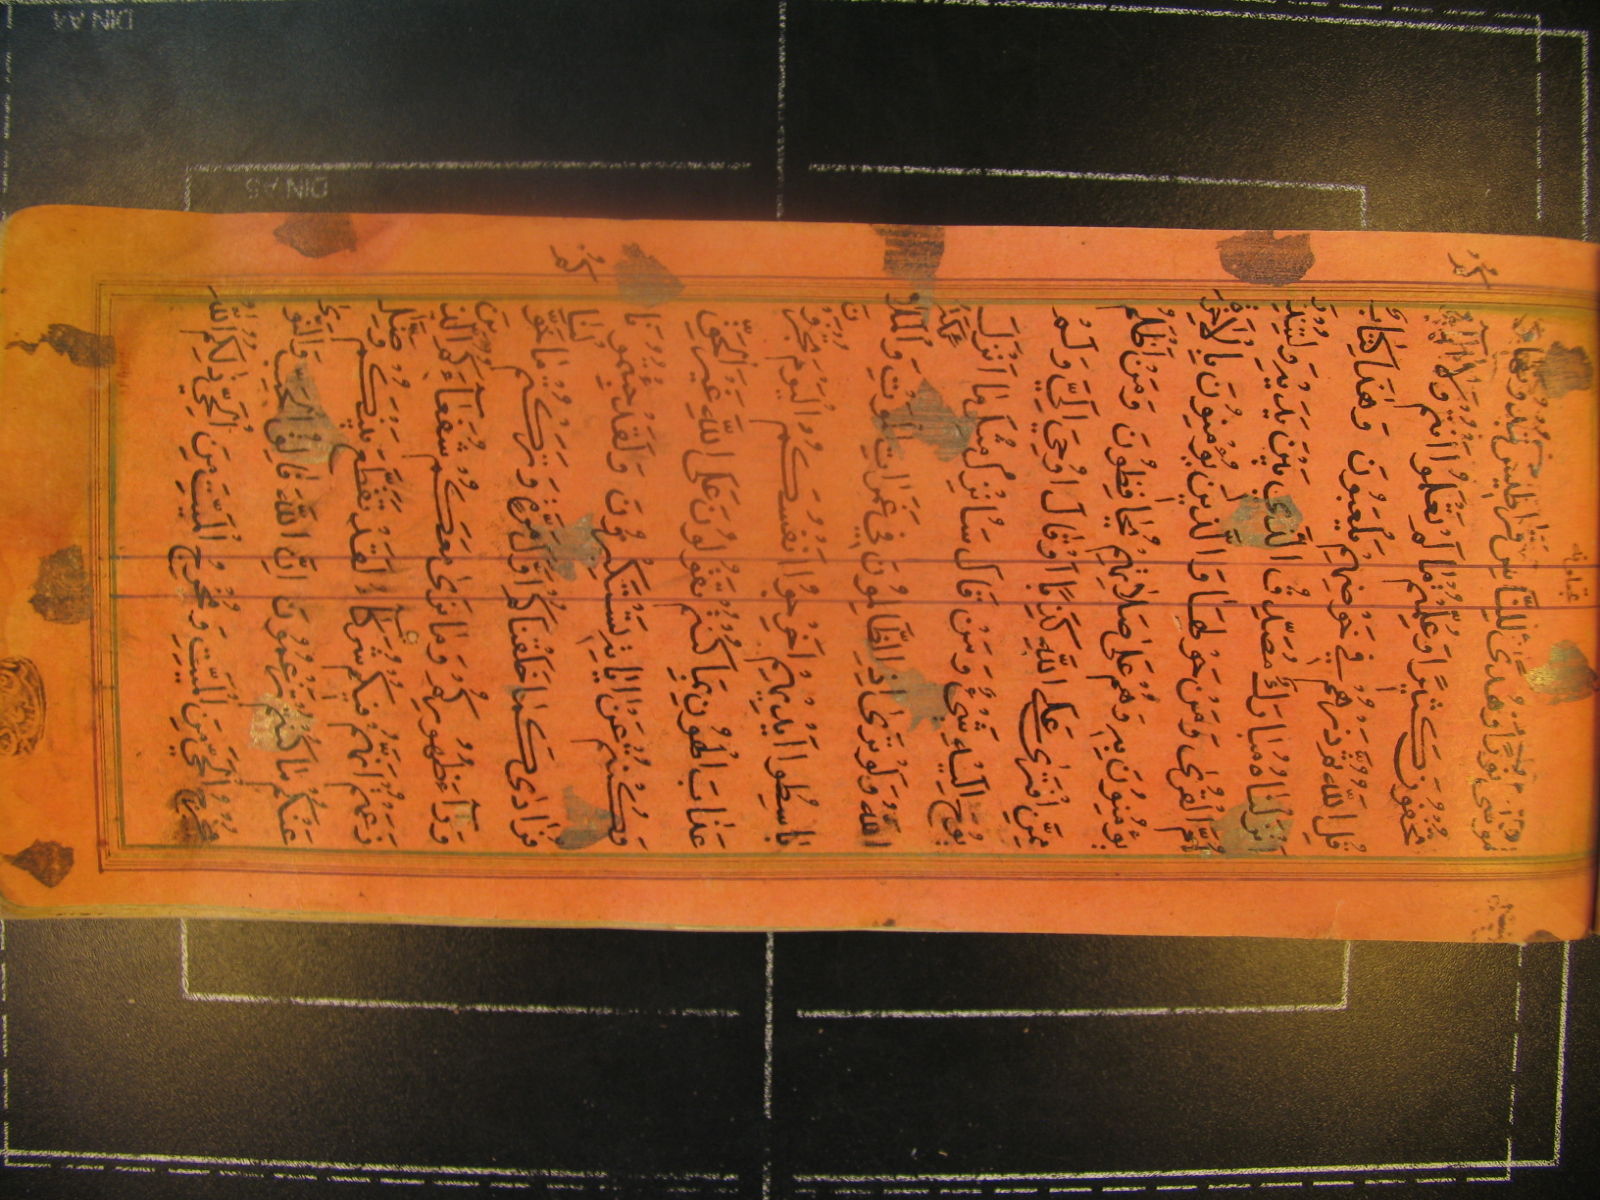 موسى نورا وهدى للناس تجعلونه قراطيس تبدونها
تخفون كثيرا وعلمتم ما لم تعلموا انتم ولا
قل الله ثم ذرهم في خوضهم يلعبون وهذا كتاب
انزلناه مبارك مصدق الذي بين يديه ولتنذر
ام القرى ومن حولها والذين يؤمنون بالاخرة
يؤمنون به وهم على صلاتهم يحافظون ومن اظلم
ممن افترى على الله كذبا او قال اوحي الي ولم
يوح اليه شيء ومن قال سانزل مثل ما انزل
الله ولو ترى اذ الظالمون في غمرات الموت والملائكة
باسطوا ايديهم اخرجوا انفسكم اليوم تجزون
عذاب الهون بما كنتم تقولون على الله غير الحق
وكنتم عن اياته تستكبرون ولقد جئتمونا
فرادى كما خلقناكم اول مرة وتركتم ما خولنا
وراء ظهوركم وما نرى معكم شفعاءكم الذين
زعمتم انهم فيكم شركاء لقد تقطع بينكم وضل
عنكم ما كنتم تزعمون ان الله فالق الحب والنوى
يخرج الحي من الميت ومخرج الميت من الحي ذلكم الله
DIN A4
DIN A5